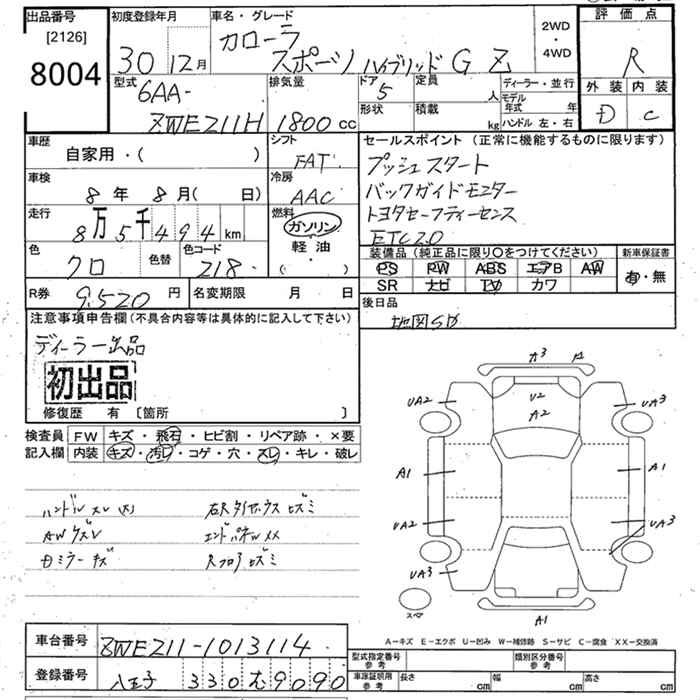 出品番号
[2126]
8004
初度登録年月
30 12月
車名・グレード
カローラ
スポーツ ハイブリッド G Z
2WD
・
4WD
評価点
R
外装 内装
D C
型式
6AA-
ZWE211H
排気量
1800 cc
ドア
5
形状
定員
人
積載
kg
ディーラー・並行
モデル年式 年
ハンドル 左・右
車歴
自家用・( )
シフト
FAT
車検
8 年 8 月( 日)
冷房
AAC
走行
8万5千494 km
燃料
ガソリン
軽油・
( )
色
クロ
色替
色コード
218
R券 9,520 円
名変期限 月 日
セールスポイント (正常に機能するものに限ります)
プッシュスタート
バックガイドモニター
トヨタセーフティーセンス
ETC2.0
装備品 (純正品に限り○をつけてください)
PS PW ABS エアB AW
SR ナビ TV カワ
新車保証書
有・無
後日品
地図SD
注意事項申告欄 (不具合内容等は具体的に記入して下さい)
ディーラー出品
初出品
修復歴 有 〔箇所 〕
検査員
記入欄
FW キズ・飛石・ヒビ割・リペア跡・×要
内装 キズ・汚レ・コゲ・穴・スレ・キレ・破レ
ハンドルスレ(大)
AWキズ
ミラーキズ
右Rタイヤハウスヒズミ
エンドパネルXX
Rフロアヒズミ
A3
U2
A2
UA2
UA3
A1
A1
UA2
UA3
UA3
スペア
A1
A−キズ E−エクボ U−凹み W−補修跡 S−サビ C−腐食 XX−交換済
車台番号 ZWE211-1013114
登録番号 八王子 330 む 9090
型式指定番号
参考
類別区分番号
参考
車庫証明用
参考
長さ cm
幅 cm
高さ cm